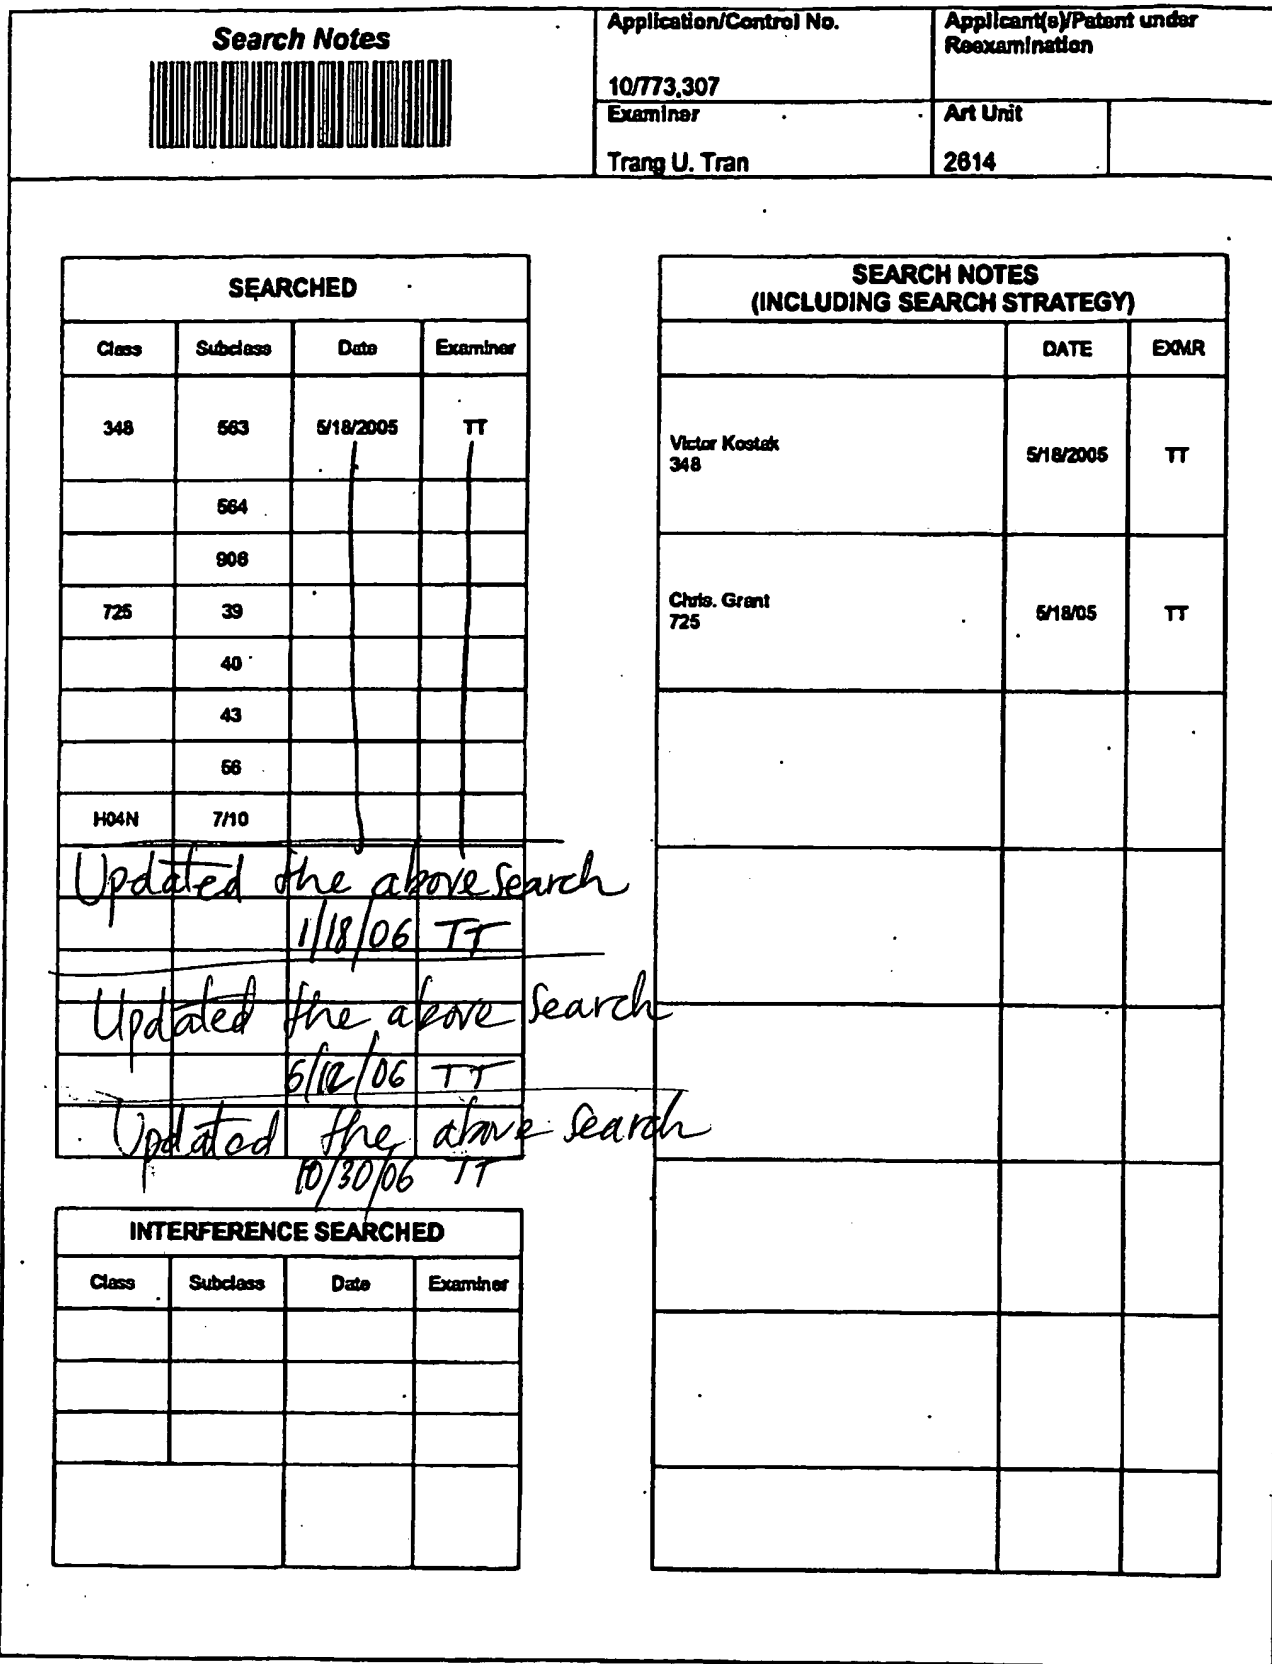 Search Notes
Application/Control No.
10/773,307
Applicant(s)/Patent under
Reexamination
Examiner
Trang U. Tran
Art Unit
2614
SEARCHED
Class Subclass Date Examiner
348 563 5/18/2005 TT
564
906
725 39
40
43
56
H04N 7/10
Updated the above search
1/18/06 TT
Updated the above search
6/12/06 TT
Updated the above search
10/30/06 TT
INTERFERENCE SEARCHED
Class Subclass Date Examiner
SEARCH NOTES
(INCLUDING SEARCH STRATEGY)
DATE EXMR
Victor Kostak
348 5/18/2005 TT
Chris. Grant
725 5/18/05 TT